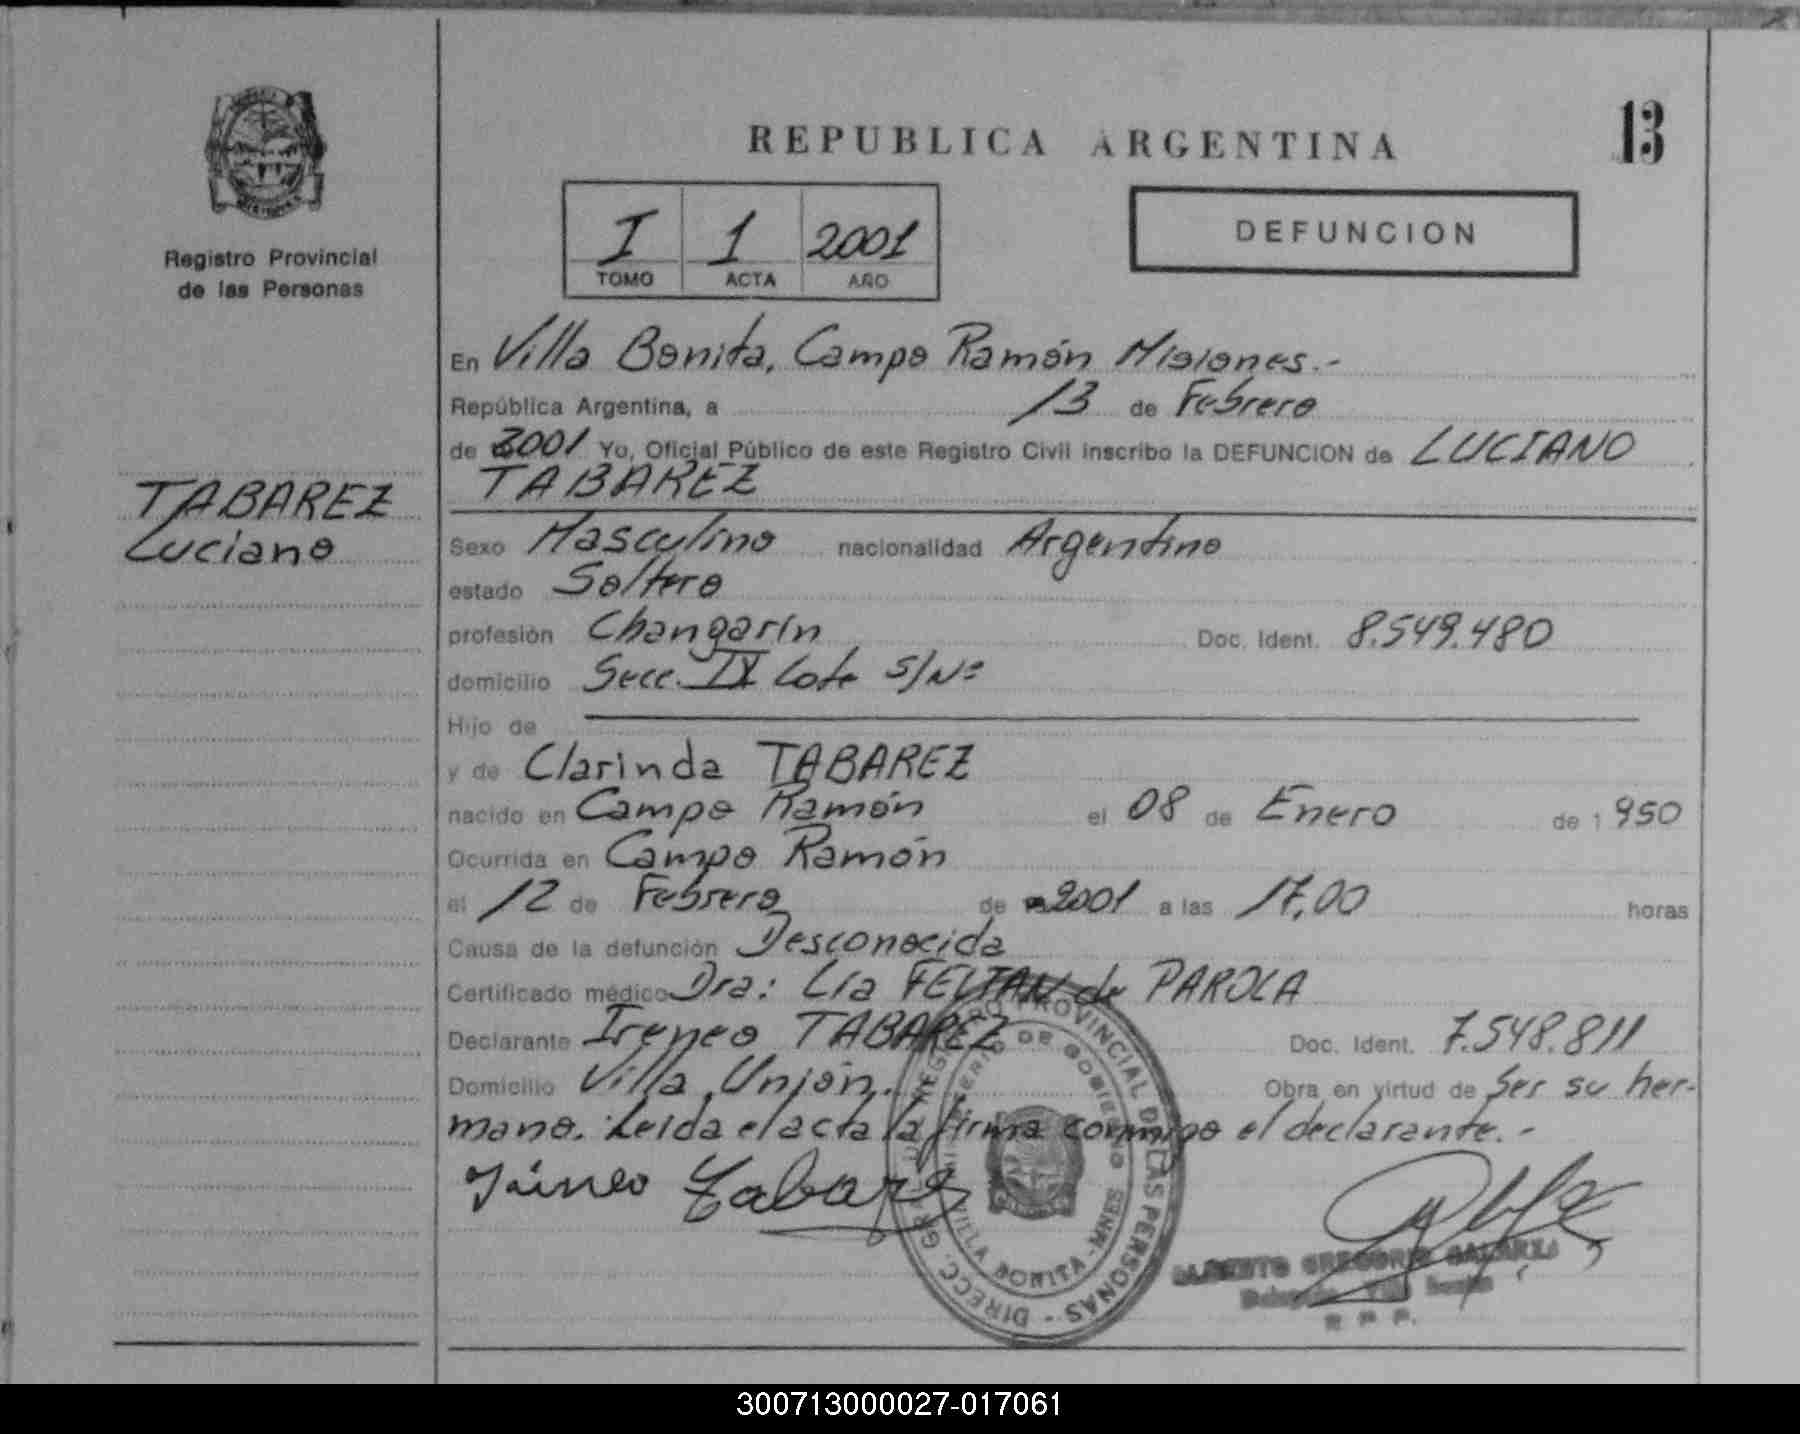 13
REPUBLICA ARGENTINA
Registro Provincial
de las Personas
I 1 2001
TOMO ACTA AÑO
DEFUNCION
En Villa Bonita, Campo Ramón Misiones.-
República Argentina, a 13 de Febrero
de 2001 Yo, Oficial Público de este Registro Civil inscribo la DEFUNCION de LUCIANO
TABAREZ
TABAREZ
Luciano
Sexo Masculino nacionalidad Argentino
estado Soltero
profesión Changarín Doc. Ident. 8.549.480
domicilio Secc. IX Lote S/Nº
Hijo de
y de Clarinda TABAREZ
nacido en Campo Ramón el 08 de Enero de 1950
Ocurrida en Campo Ramón
el 12 de Febrero de 2001 a las 17,00 horas
Causa de la defunción Desconocida
Certificado médico Dra: Lía de PAROLA
Declarante Ireneo TABAREZ Doc. Ident. 7.548.811
Domicilio Villa Unión. Obra en virtud de Ser su her-
mano. Leida el acta la firma conmigo el declarante.-
DIRECC. GRAL. DE REGISTRO PROVINCIAL DE LAS PERSONAS -
MINISTERIO DE GOBIERNO
VILLA BONITA - MNES
GREGORIO
R P P.
300713000027-017061